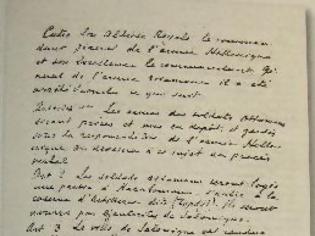 Entre Son Altesse Royale le comman-
dant général de l'armée Hellénique
et son Excellence le commandant Gé-
néral de l'armée ottomane il a été
arrêté convenu ce qui suit.
Article 1er Les armes des soldats ottomans
seront prises et mises en dépôt et gardées
sous la responsabilité de l'armée Hellé-
nique. On dressera à ce sujet un procès
verbal
Art 2 Les soldats ottomans seront logés
une partie à Karabournou, l'autre à la
caserne d'Artillerie dite (Topdji). Ils seront
nourris par de Salonique.
Art 3 La ville de Salonique est rendue